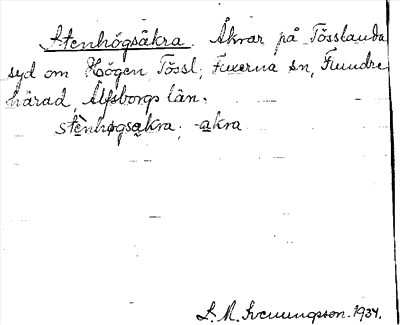 Stenhögsåkra. Åkrar på Tösslanda
syd om Högen, Tössl., Fuxerna sn, Flundre
härad, Älfsborgs län.
stènhøgsåkra; -akra
S. M. Svenungsson. 1934.